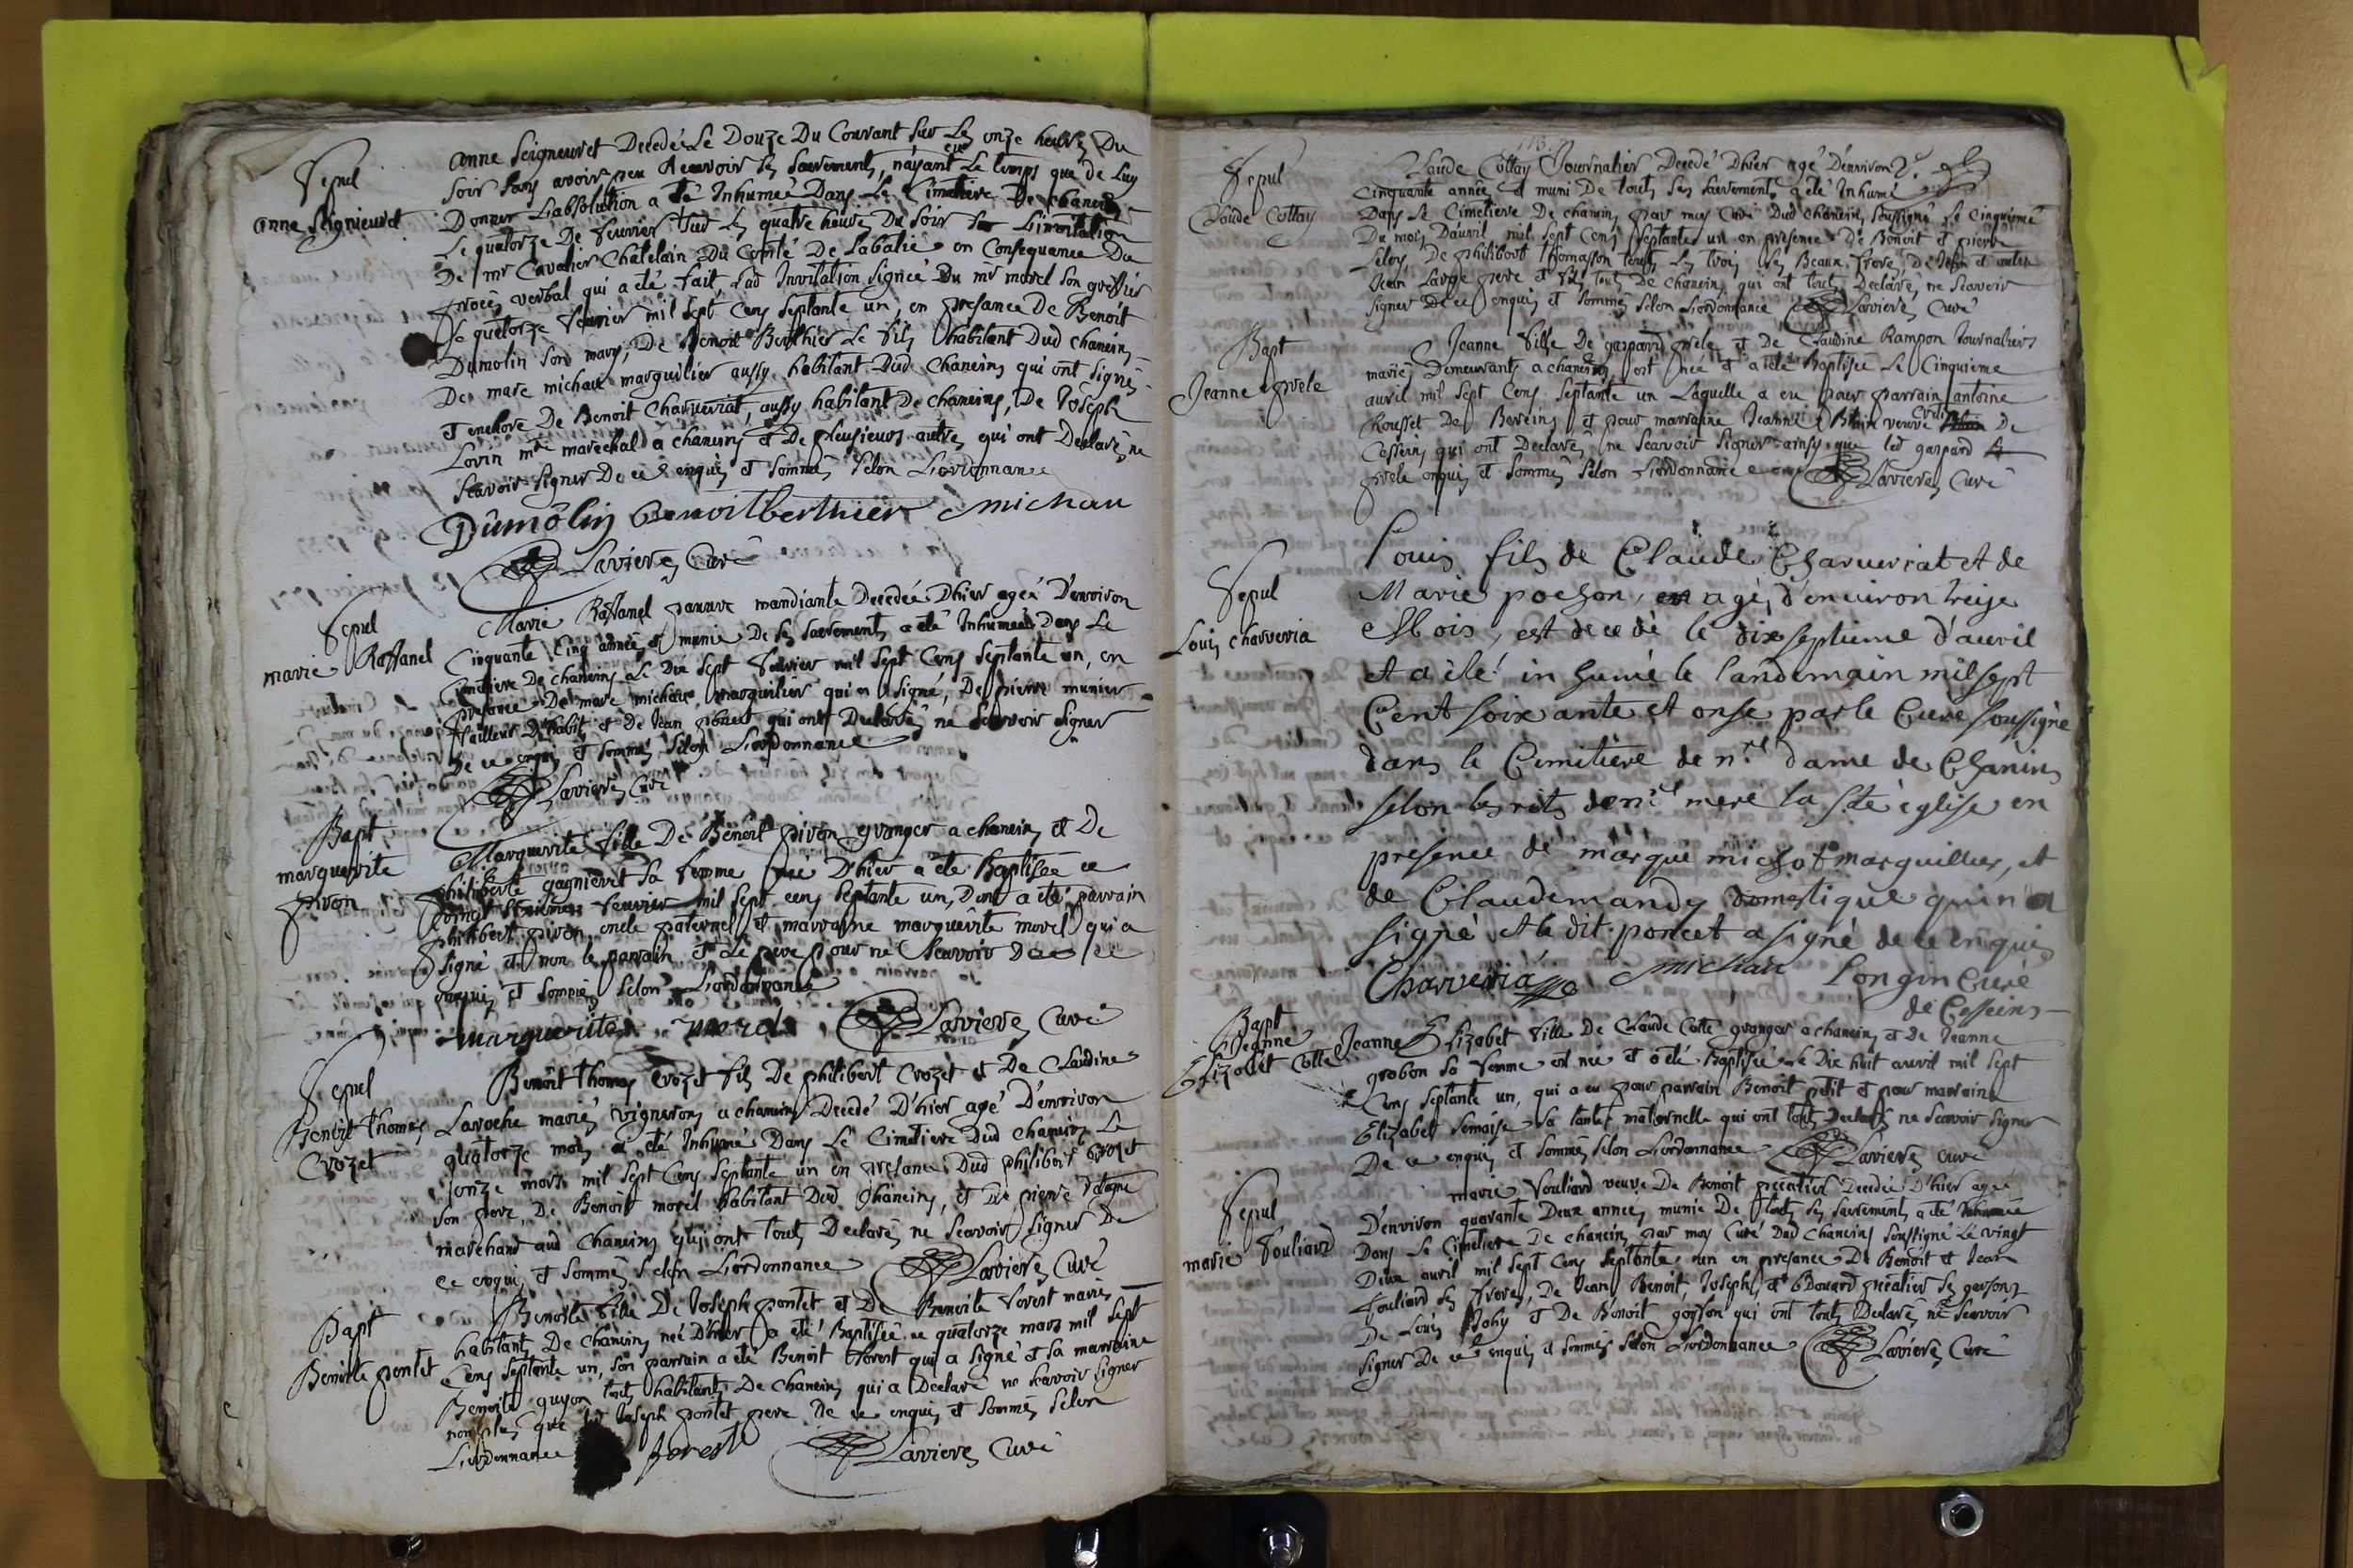 Sepul
anne Seignieuret
anne Seigneuret Decedée Le Douze Du Courant sur Les onze heures Du
soir sans avoir peu Recevoir Ses Sacrements, n'ayant eu Le temps que de Luy
Donner L'absolution a été Inhumée Dans Le Cimetiere De chaneins
Le quatorze De fevrier Sur Les quatre heures Du soir Sur L'invitation
De mr Cavalier Chatelain Du Comté De Labatie en Consequence Du
procès verbal qui a été fait, Lad Invitation Signée Du mr morel son greffier
Le quatorze fevrier mil Sept Cens Septante un, en presance De Benoit
Dumolin Son mary, De Benoit Berthier Le fils habitant Dud chaneins
De marc michau marguilier aussy habitant Dud Chaneins qui ont signés
et enchore De Benoit Charverriat, aussy habitant De chaneins, De Joseph
Lovin mtre marechal a chaneins et De plusieurs autres qui ont Declarés ne
Scavoir Signer De ce enquis et Sommés Selon Lordonnance
Dumôlin Benoitberthier michau
Lavieres Curé
Sepul
marie Raffanel
Marie Raffanel pauvre mandiante Decedée Dhier agée D'environ
Cinquante Cinq années et munie De Ses Sacrements a été Inhumée Dans Le
Cimetiere De chaneins Le Dix Sept fevrier mil Sept Cens Septante un, en
presance De marc michau marguilier qui a signé, De pierre munier
tailleur D'habit et De Jean qui ont Declarés ne Scavoir Signer
De ce enquis et Sommés Selon Lordonnance
Lavieres Curé
Bapt
marguerite
pivon
Marguerite fille De Benoit pivon granger a chaneins et De
philiberte gagnieret Sa femme née D'hier a été Baptisée ce
vingt fevrier mil Sept cens Septante un, Dont a été parrain
philibert pivon oncle paternel et marraine marguerite morel qui a
signé et non le parrain et Le pere pour ne Scavoir De ce
enquis et Sommés Selon Lordonnance
marguerite morel Lavieres Curé
Sepul
Benoit Thomas
Crozet
Benoit Thomas Crozet fils De philibert Crozet et De Claudine
Laroche mariés vignerons a chaneins Decedé D'hier agé D'environ
quatorze mois a été Inhumé Dans Le Cimetiere Dud chaneins Le
onze mars mil Sept Cens Septante un en presance Dud philibert Crozet
son pere, De Benoit morel habitant Dud Chaneins, et De pierre
marchand aud Chaneins qui ont touts Declarés ne Scavoir Signer De
ce enquis et Sommés Selon Lordonnance Lavieres Curé
Bapt
Benoite pontet
Benoite fille De Joseph pontet et De Benoite forest mariés
habitants De chaneins née D'hier a été Baptisée ce quatorze mars mil Sept
Cens Septante un, son parrain a été Benoit forest qui a signé et sa marraine
Benoite guyon touts habitants De chaneins qui a Declaré ne Scavoir Signer
non plus que led Joseph pontet pere De ce enquis et Sommés Selon
Lordonnance forest Lavieres Curé
Sepul
Claude Collay
Claude Collay Journalier Decedé Dhier agé D'environ
Cinquante années et muni De touts Ses Sacrements a été Inhumé
Dans Le Cimetiere De chaneins par moy Curé Dud Chaneins Soussigné Le Cinquieme
Du mois D'avril mil Sept Cens Septante un en presence De Benoit et pierre
De philibert Thomasson touts Les trois Ses Beaux freres, De Jean et autre
Jean Large pere et fils touts De Chaneins qui ont touts Declarés ne Scavoir
Signer De ce enquis et Sommés Selon Lordonnance Lavieres Curé
Bapt
Jeanne prele
Jeanne fille De gaspard prele et De Claudine Rampon Journaliers
mariés Demeurants a chaneins, est née et a été Baptisée Le Cinquieme
avril mil Sept Cens Septante un Laquelle a eu pour parrain antoine
Rousset De Bereins et pour marraine Jeanne veuve De
Cesseins qui ont Declarés ne Scavoir Signer ainsy que led gaspard
prele enquis et Sommés Selon Lordonnance Lavieres Curé
Sepul
Louis charveria
Louis fils de Claude Charverriat et de
Marie pochon, agé d'environ treize
Mois, est decedé le dixseptieme d'avril
et a été inhumé le landemain mil sept
Cent soixante et onse par le Curé soussigné
dans le Cimitière de n.re dame de Chanins
selon les rits de n.re mere la Ste église en
presence de marque michot marguillier, et
de Claudemandy Domestique qui n'a
signé et le dit poncet a signé de ce enquis
Charveria michau Longin Curé
de Cesseins
Bapt
Jeanne
Elizabet Cotte
Jeanne Elizabet fille De Claude Cotte granger a chaneins et De Jeanne
grobon Sa femme est née et a été Baptisée Le Dix huit avril mil Sept
Cens Septante un, qui a eu pour parrain Benoit petit et pour marraine
Elizabet Semaise Sa tante maternelle qui ont touts Declarés ne Scavoir Signer
De ce enquis et Sommés Selon Lordonnance Lavieres curé
Sepul
marie fouliard
marie fouliard veuve De Benoit precalier Decedée D'hier agée
D'environ quarante Deux années, munie De touts Ses Sacrements a été Inhumée
Dans Le Cimetiere De chaneins par moy Curé Dud Chaneins Soussigné Le vingt
Deux avril mil Sept Cens Septante un en presance De Benoit et Jean
fouliard Ses freres, De Jean Benoit, Joseph, et Edouard precalier Ses garsons
De Louis et De Benoit qui ont touts Declarés ne Scavoir
Signer De ce enquis et Sommés Selon Lordonnance Lavieres Curé